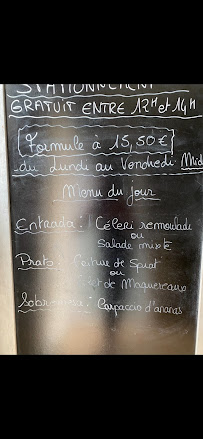 STATIONNEMENT
GRATUIT ENTRE 12H et 14H
Formule à 15,50€
du Lundi au Vendredi Mid
Menu du jour
Entrada: Céleri remoulade
ou
Salade mixte
Prato: Friture de Sprat
ou
de Maquereaux
Sobremesa: Carpaccio d'ananas